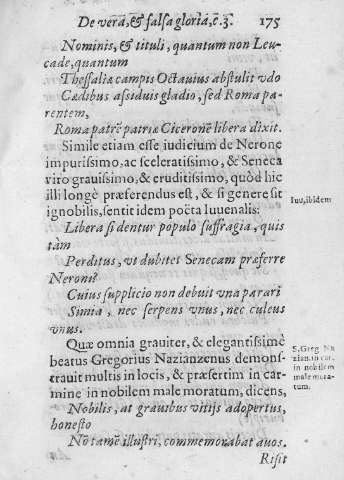 De vera, & falsa gloria, c. 3. 175
Nominis, & tituli, quantum non Leu-
cade, quantum
Thessaliæ campis Octauius abstulit vdo
Cædibus assiduis gladio, sed Roma pa-
rentem,
Roma patrē patriæ Ciceronē libera dixit.
Simile etiam esse iudicium de Nerone
impurissimo, ac sceleratissimo, & Seneca
viro grauissimo, & eruditissimo, quòd hic
illi longè præferendus est, & si genere sit
ignobilis, sentit idem poëta Iuuenalis:
Iuu, ibidem
Libera si dentur populo suffragia, quis
tàm
Perditus, vt dubitet Senecam præferre
Neroni?
Cuius supplicio non debuit vna parari
Simia, nec serpens vnus, nec culeus
vnus.
Quæ omnia grauiter, & elegantissimè
beatus Gregorius Nazianzenus demons-
trauit multis in locis, & præsertim in car-
mine in nobilem male moratum, dicens,
S. Greg Na
zian. in car.
in nobilem
male mora-
tum.
Nobilis, at grauibus vitijs adopertus,
honesto
Nō tamē illustri, commemorabat auos.
Risit